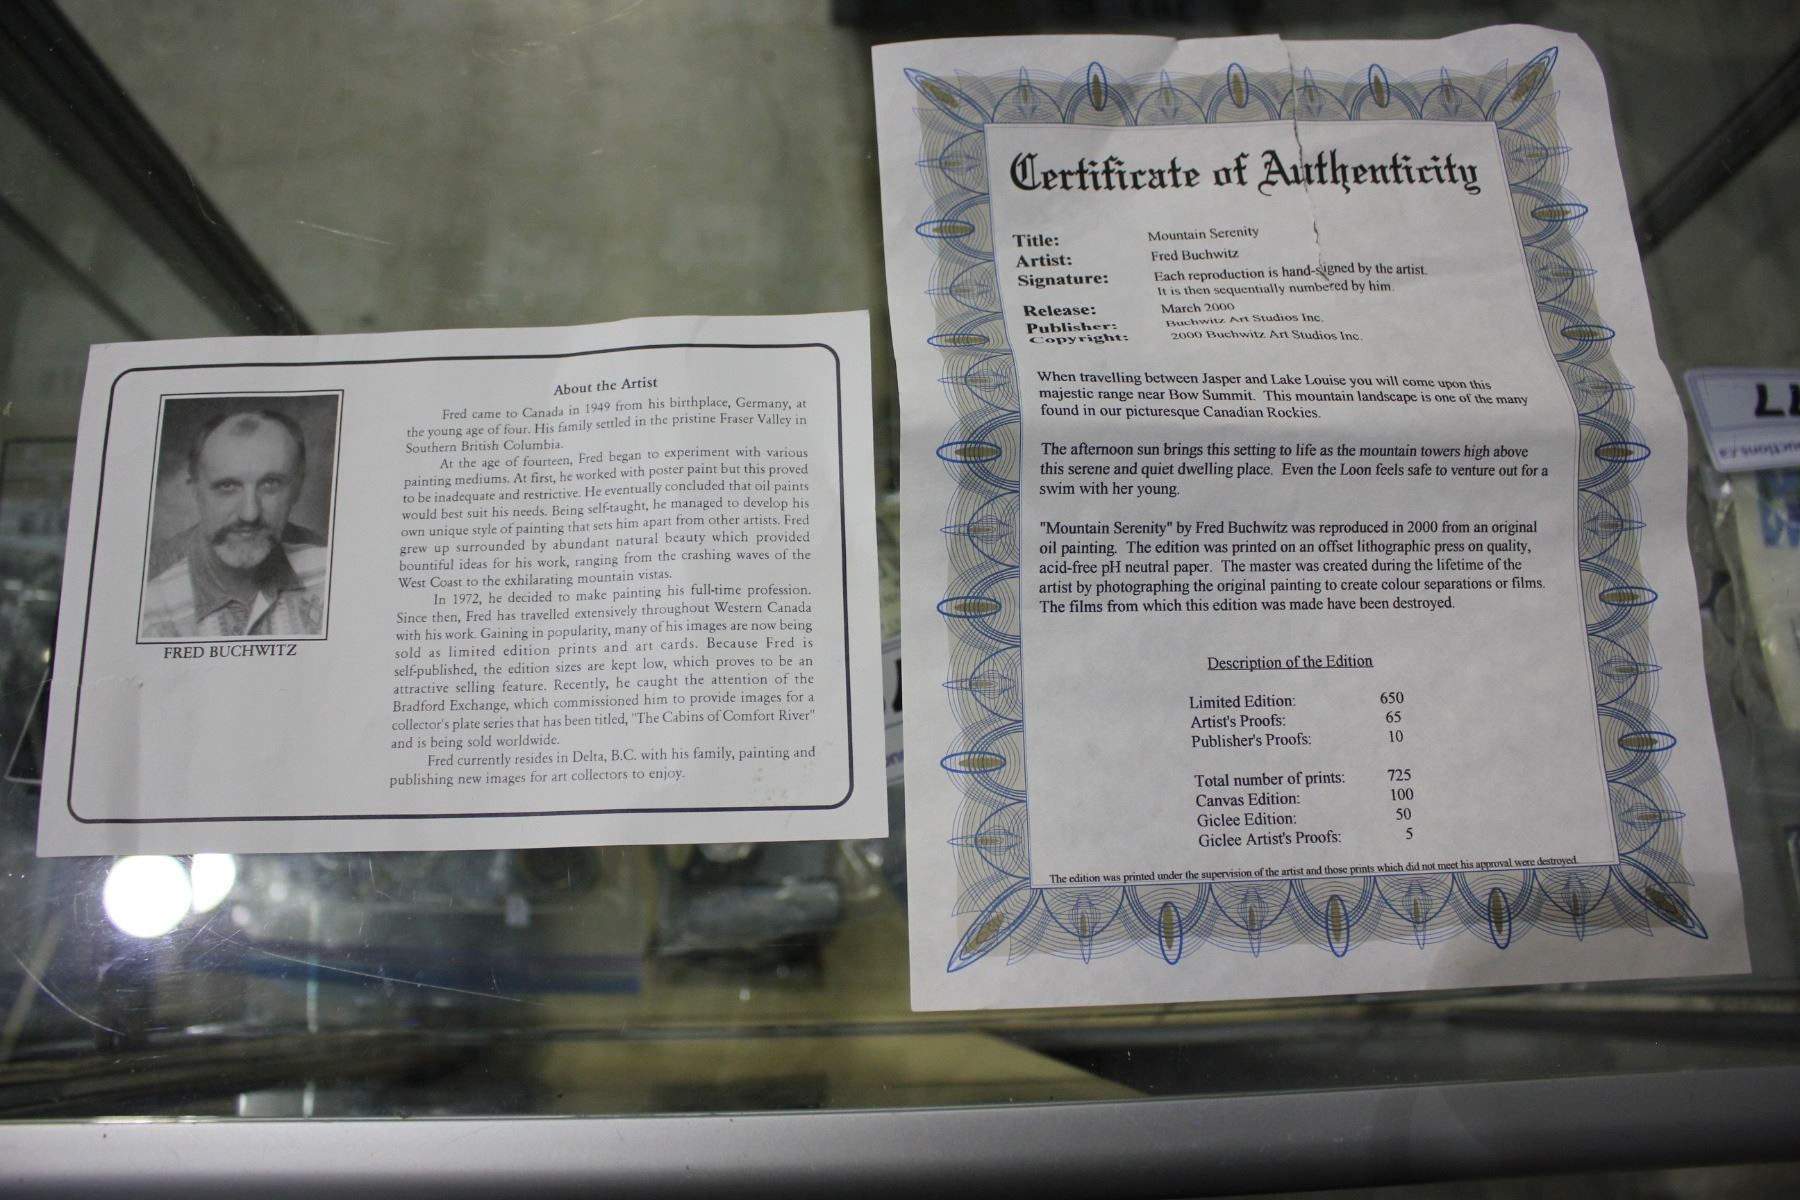 About the Artist
Fred came to Canada in 1949 from his birthplace, Germany, at
the young age of four. His family settled in the pristine Fraser Valley in
Southern British Columbia.
At the age of fourteen, Fred began to experiment with various
painting mediums. At first, he worked with poster paint but this proved
to be inadequate and restrictive. He eventually concluded that oil paints
would best suit his needs. Being self-taught, he managed to develop his
own unique style of painting that sets him apart from other artists. Fred
grew up surrounded by abundant natural beauty which provided
bountiful ideas for his work, ranging from the crashing waves of the
West Coast to the exhilarating mountain vistas.
In 1972, he decided to make painting his full-time profession.
Since then, Fred has travelled extensively throughout Western Canada
with his work. Gaining in popularity, many of his images are now being
sold as limited edition prints and art cards. Because Fred is
self-published, the edition sizes are kept low, which proves to be an
attractive selling feature. Recently, he caught the attention of the
Bradford Exchange, which commissioned him to provide images for a
collector's plate series that has been titled, "The Cabins of Comfort River"
and is being sold worldwide.
Fred currently resides in Delta, B.C. with his family, painting and
publishing new images for art collectors to enjoy.
FRED BUCHWITZ
Certificate of Authenticity
Title: Mountain Serenity
Artist: Fred Buchwitz
Signature: Each reproduction is hand-signed by the artist.
It is then sequentially numbered by him.
Release: March 2000
Publisher: Buchwitz Art Studios Inc.
Copyright: 2000 Buchwitz Art Studios Inc.
When travelling between Jasper and Lake Louise you will come upon this
majestic range near Bow Summit. This mountain landscape is one of the many
found in our picturesque Canadian Rockies.
The afternoon sun brings this setting to life as the mountain towers high above
this serene and quiet dwelling place. Even the Loon feels safe to venture out for a
swim with her young.
"Mountain Serenity" by Fred Buchwitz was reproduced in 2000 from an original
oil painting. The edition was printed on an offset lithographic press on quality,
acid-free pH neutral paper. The master was created during the lifetime of the
artist by photographing the original painting to create colour separations or films.
The films from which this edition was made have been destroyed.
Description of the Edition
Limited Edition: 650
Artist's Proofs: 65
Publisher's Proofs: 10
Total number of prints: 725
Canvas Edition: 100
Giclee Edition: 50
Giclee Artist's Proofs: 5
The edition was printed under the supervision of the artist and those prints which did not meet his approval were destroyed.